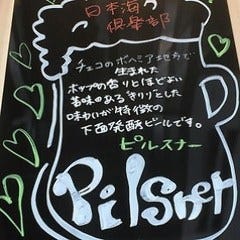 日本海
倶楽部
チェコのボヘミア地方で
生まれた
ホップの香りとほどよい
苦味のある「キリッ」とした
味わいが特徴の
下面発酵ビールです。
ピルスナー
Pilsner